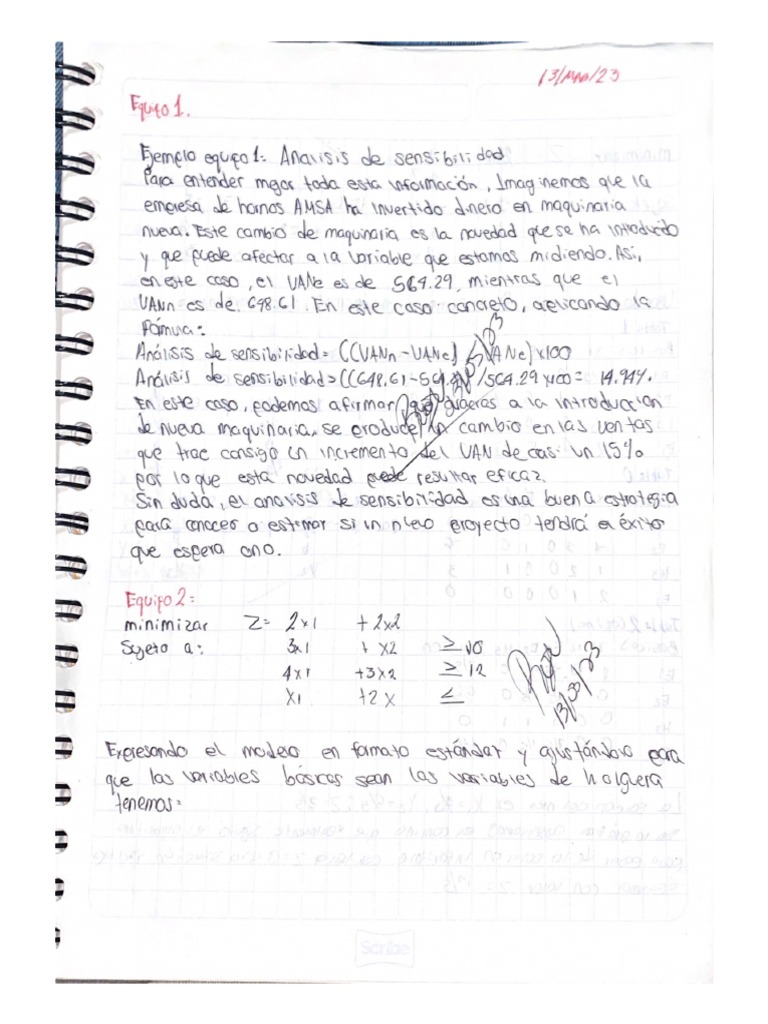 13/Mar/23
Equipo 1.
Ejemplo equipo 1: Analisis de sensibilidad
Para entender mejor toda esta información, Imaginemos que la
empresa de hornos AMSA ha invertido dinero en maquinaria
nueva. Este cambio de maquinaria es la novedad que se ha introducido
y que puede afectar a la variable que estamos midiendo. Así,
en este caso, el VANe es de 564.29, mientras que el
VANn es de 648.61. En este caso concreto, aplicando la
fórmula:
Análisis de sensibilidad= ((VANn-VANe) /VANe)x100
Análisis de sensibilidad=((648.61-564.29) /564.29 x100= 14.94%.
En este caso, podemos afirmar que gracias a la introduccion
de nueva maquinaria, se produce un cambio en las ventas
que trae consigo un incremento del VAN de casi un 15%
por lo que esta novedad puede resultar eficaz.
Sin duda, el analisis de sensibilidad es una buena estrategia
para conocer o estimar si un nuevo proyecto tendrá el éxito
que espera uno.
Equipo 2:
minimizar Z= 2x1 +2x2
Sujeto a: 3x1 + x2 ≥ 10
4x1 +3x2 ≥ 12
x1 +2x ≤
13/03/23
Expresando el modelo en formato estándar y ajustándolo para
que las variables básicas sean las variables de holgura
tenemos:
Scribe